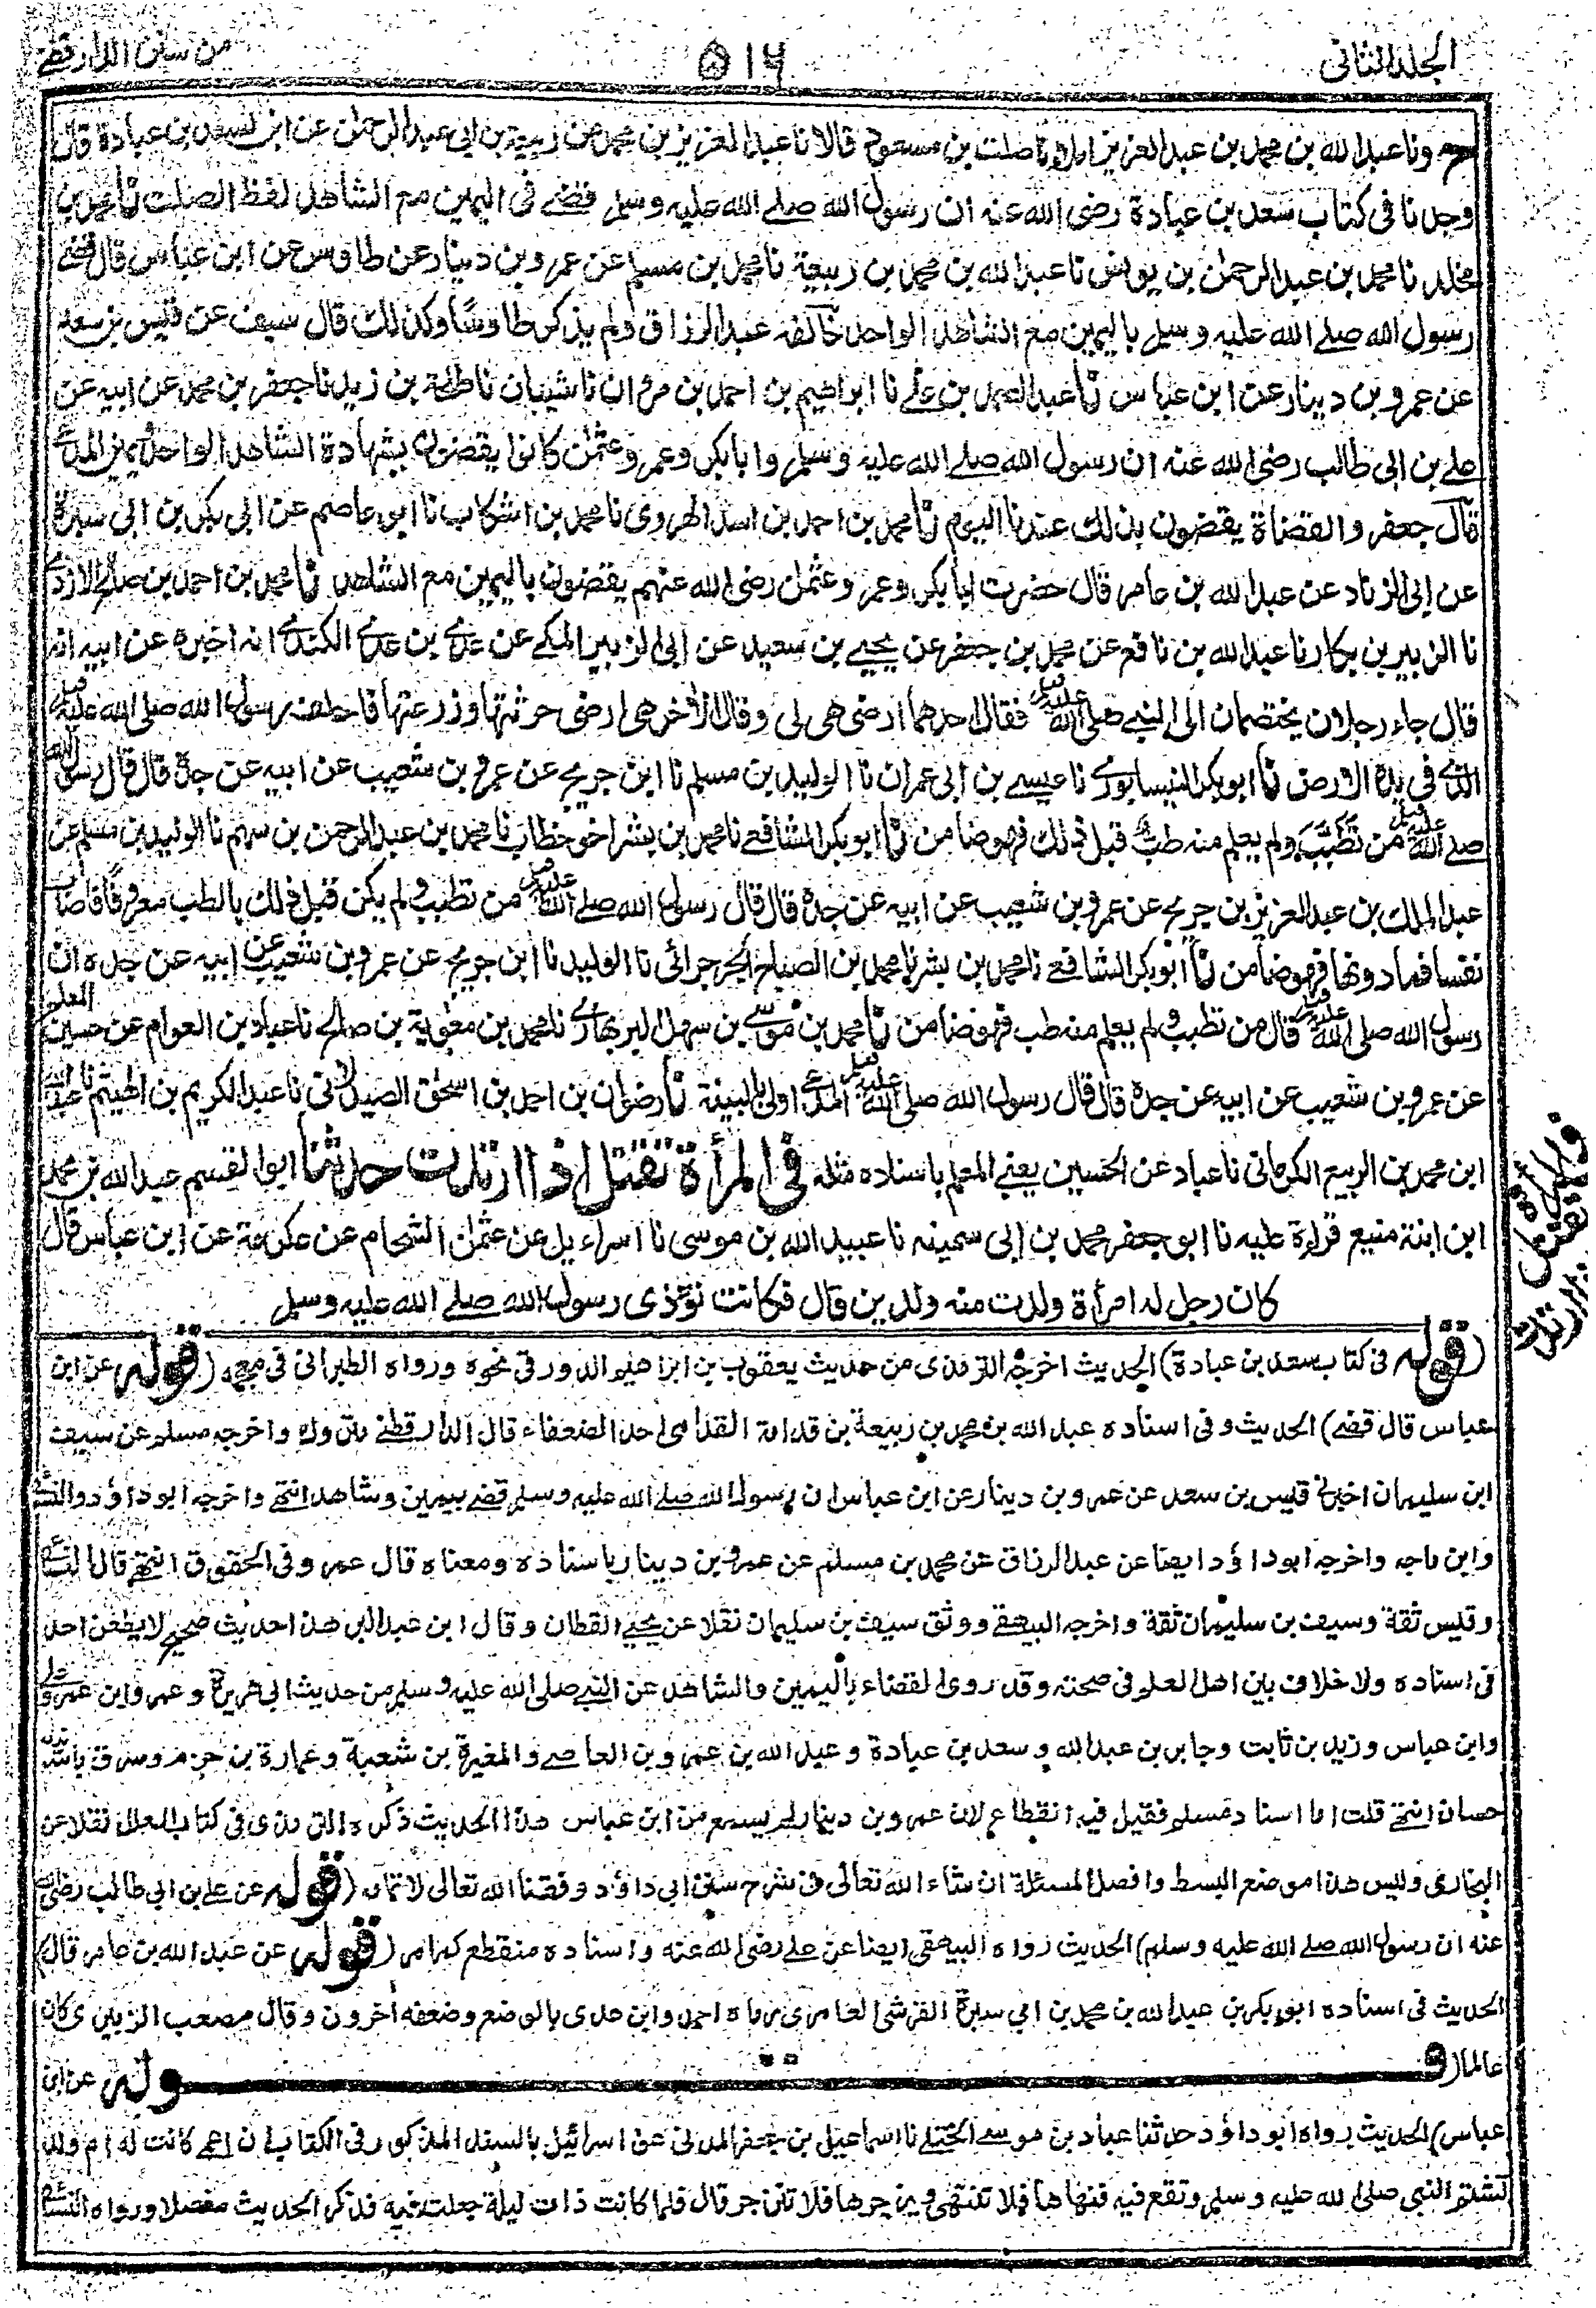 الجلد الثانى
٥١٦
من سنن الدارقطنے
ح ونا عبد الله بن محمد بن عبد العزيز املاء نا صلت بن مسعود قالا نا عبد العزيز بن محمد عن ربيعة بن ابى عبد الرحمن عن ابن لسعد بن عبادة قال
وجدنا فى كتاب سعد بن عبادة رضى الله عنه ان رسول الله صلے الله عليه وسلم قضے فى اليمين مع الشاهد لفظ الصلت نا محمد بن
مخلد نا محمد بن عبد الرحمن بن يونس نا عبد الله بن محمد بن ربيعة نا محمد بن مسلم عن عمرو بن دينار عن طاوس عن ابن عباس قال قضے
رسول الله صلے الله عليه وسلم باليمين مع الشاهد الواحد خالفه عبد الرزاق ولم يذكر طاوسا وكذلك قال سيف عن قيس بن سعد
عن عمرو بن دينار عن ابن عباس نا عبد الصمد بن علے نا ابراهيم بن احمد بن مروان نا شيبان نا طلحة بن زيد نا جعفر بن محمد عن ابيه عن
علے بن ابى طالب رضى الله عنه ان رسول الله صلے الله عليه وسلم وابا بكر وعمر وعثمن كانوا يقضون بشهادة الشاهد الواحد ويمين المدعے
قال جعفر والقضاة يقضون بذلك عندنا اليوم نا محمد بن احمد بن اسد الهروى نا محمد بن اشكاب نا ابو عاصم عن ابى بكر بن ابى سبرة
عن ابى الزناد عن عبد الله بن عامر قال حضرت ابا بكر وعمر وعثمن رضى الله عنهم يقضون باليمين مع الشاهد نا محمد بن احمد بن صالح الازدى
نا الزبير بن بكار نا عبد الله بن نافع عن محمد بن جعفر عن يحيے بن سعيد عن ابى الزبير المكے عن عدى بن عدى الكندى انه اخبره عن ابيه انه
قال جاء رجلان يختصمان الى النبے صلى الله عليه وسلم فقال احدهما ارضى هى لى وقال الاخر هى ارضى حرثتها وزرعتها فاحلف رسول الله صلى الله عليه وسلم
الذى فى يده الارض نا ابو بكر النيسابورى نا عيسے بن ابى عمران نا الوليد بن مسلم نا ابن جريج عن عمرو بن شعيب عن ابيه عن جده قال قال رسول الله
صلے الله عليه وسلم من تطبب ولم يعلم منه طب قبل ذلك فهو ضامن نا ابو بكر الشافعے نا محمد بن بشر اخو خطاب نا محمد بن عبد الرحمن بن سهم نا الوليد بن مسلم عن
عبد الملك بن عبد العزيز بن جريج عن عمرو بن شعيب عن ابيه عن جده قال قال رسول الله صلے الله عليه وسلم من تطبب ولم يكن قبل ذلك بالطب معروفا فاصاب
نفسا فما دونها فهو ضامن نا ابو بكر الشافعے نا محمد بن بشر نا محمد بن الصباح الجرجرائى نا الوليد نا ابن جريج عن عمرو بن شعيب عن ابيه عن جده ان
رسول الله صلى الله عليه وسلم قال من تطبب ولم يعلم منه طب فهو ضامن نا محمد بن موسے بن سهل البربهارى نا محمد بن معوية بن صالح نا عباد بن العوام عن حسين المعلم
عن عمرو بن شعيب عن ابيه عن جده قال قال رسول الله صلى الله عليه وسلم المدعے اولى بالبينة نا رضوان بن احمد بن اسحق الصيدلانى نا عبد الكريم بن الهيثم نا عبد الله
ابن محمد بن الربيع الكرمانى نا عباد عن الحسين يعنے المعلم باسناده مثله فى المرأة تقتل اذا ارتدت حدثنا ابو القسم عبد الله بن محمد
ابن ابنة منيع قراءة عليه نا ابو جعفر محمد بن ابى سمينه نا عبيد الله بن موسى نا اسراءيل عن عثمن الشحام عن عكرمة عن ابن عباس قال
كان رجل له امرأة ولدت منه ولدين قال فكانت توذى رسول الله صلے الله عليه وسلم
فى المرأة تقتل اذا ارتدت
(قوله فى كتاب سعد بن عبادة) الحديث اخرجه الترمذى من حديث يعقوب بن ابراهيم الدورقى نحوه ورواه الطبرانى فى معجمه (قوله عن ابن
عباس قال قضے) الحديث وفى اسناده عبد الله بن محمد بن ربيعة بن قدامة القدامى احد الضعفاء قال الدارقطنے متروك واخرجه مسلم عن سيف
ابن سليمان اخبرنى قيس بن سعد عن عمرو بن دينار عن ابن عباس ان رسول الله صلے الله عليه وسلم قضے بيمين وشاهد انتهے واخرجه ابو داؤد والنسائى
وابن ماجه واخرجه ابو داؤد ايضا عن عبد الرزاق عن محمد بن مسلم عن عمرو بن دينار باسناده ومعناه قال عمرو فى الحقوق انتهے قال النسائى
وقيس ثقة وسيف بن سليمان ثقة واخرجه البيهقے ووثق سيف بن سليمان نقلا عن يحيے القطان وقال ابن عبد البر هذا حديث صحيح لا يطعن احد
فى اسناده ولا خلاف بين اهل العلم فى صحته وقد روى القضاء باليمين والشاهد عن النبے صلى الله عليه وسلم من حديث ابى هريرة وعمر وابن عمر وعلى
وابن عباس وزيد بن ثابت وجابر بن عبد الله وسعد بن عبادة وعبد الله بن عمرو بن العاصے والمغيرة بن شعبة وعمارة بن حزم وسرق باسانيد
حسان انتهے قلت اما اسناد مسلم فقيل فيه انقطاع لان عمرو بن دينار لم يسمع من ابن عباس هذا الحديث ذكره الترمذى فى كتاب العلل نقلا عن
البخارى وليس هذا موضع البسط وافصل المسئلة ان شاء الله تعالى فى شرح سنن ابى داؤد وفقنا الله تعالى لاتمامه (قوله عن علے بن ابى طالب رضى الله
عنه ان رسول الله صلے الله عليه وسلم) الحديث رواه البيهقى ايضا عن علے رضى الله عنه واسناده منقطع كما مر (قوله عن عبد الله بن عامر قال)
الحديث فى اسناده ابو بكر بن عبد الله بن محمد بن ابي سبرة القرشى العامرى رماه احمد وابن عدى بالوضع وضعفه اخرون وقال مصعب الزبيرى كان
عالما (قوله عن ابن
عباس) الحديث رواه ابو داؤد حدثنا عباد بن موسے الختلے نا اسماعيل بن جعفر المدنى عن اسرائيل بالسند المذكور فى الكتاب ان اعمى كانت له ام ولد
تشتم النبى صلى الله عليه وسلم وتقع فيه فنهاها فلا تنتهى ويزجرها فلا تنزجر قال فلما كانت ذات ليلة جعلت فيه فذكر الحديث مفصلا ورواه النسائى